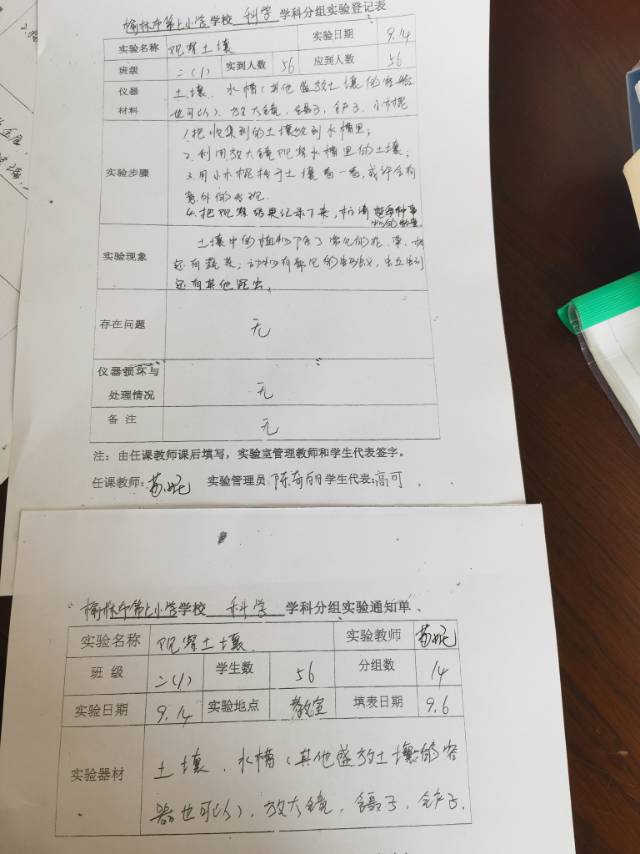 榆林市第七小学学校 科学 学科分组实验登记表
实验名称 观察土壤 实验日期 9.14
班级 二(1) 实到人数 56 应到人数 56
仪器 土壤、水槽(其他盛放土壤的容器
材料 也可以)、放大镜、镊子、铲子、小木棍
1.把收集到的土壤放到水槽里;
2.利用放大镜观察水槽里的土壤;
实验步骤
3.用小木棍拨于土壤看一看,或许会有
意外的发现.
4.把观察结果记录下来,
土壤中的植物除了常见的花、草、树
实验现象 还有蔬菜;动物有常见的蚂蚁、
还有其他昆虫。
存在问题 无
仪器损坏与
处理情况 无
备 注 无
注:由任课教师课后填写,实验室管理教师和学生代表签字。
任课教师: 实验管理员:陈奇丽 学生代表:高可
榆林市第七小学学校 科学 学科分组实验通知单
实验名称 观察土壤 实验教师
班 级 二(1) 学生数 56 分组数 14
实验日期 9.14 实验地点 教室 填表日期 9.6
实验器材 土壤、水槽(其他盛放土壤的容
器也可以)、放大镜、镊子、铲子、